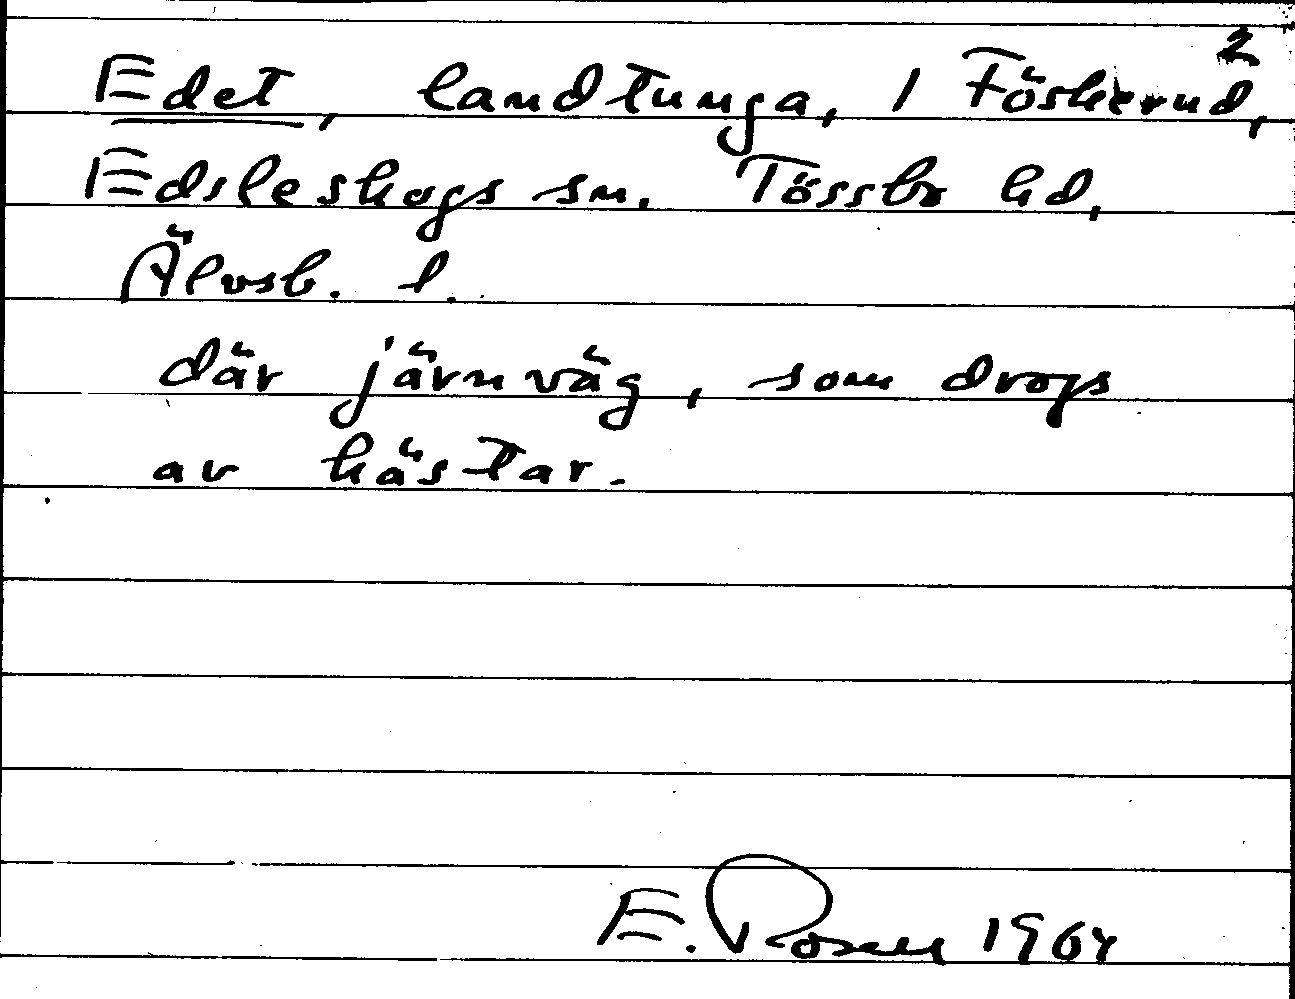 Edet, landtunga, 1 Föskerud,²
Edsleskogs sn. Tössbo hd,
Älvsb. l.
där järnväg, som drogs
av hästar.
E. Rosen 1964